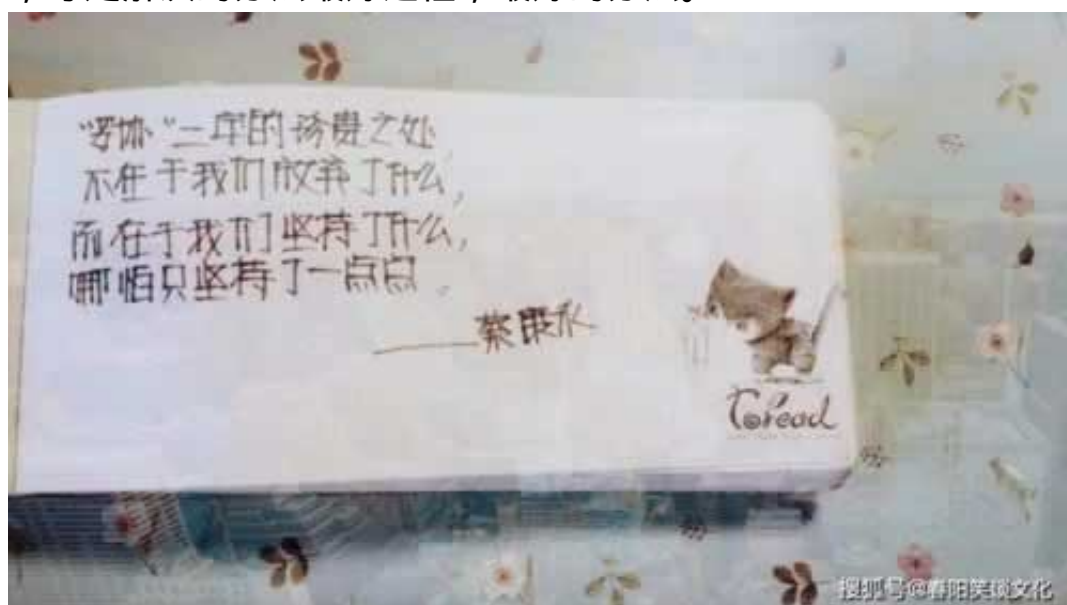 “妥协”二字的珍贵之处
不在于我们放弃了什么，
而在于我们坚持了什么，
哪怕只坚持了一点点。
——蔡康永
搜狐号@春阳笑谈文化